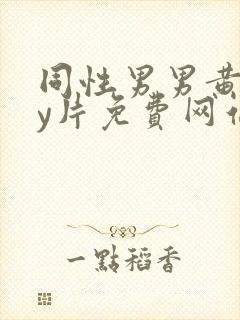 同性男男黄
y片免费网
一點稻香